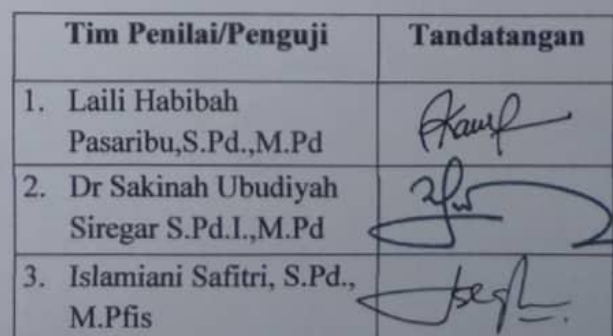 Tim Penilai/Penguji Tandatangan
1. Laili Habibah
Pasaribu,S.Pd.,M.Pd
2. Dr Sakinah Ubudiyah
Siregar S.Pd.I.,M.Pd
3. Islamiani Safitri, S.Pd.,
M.Pfis